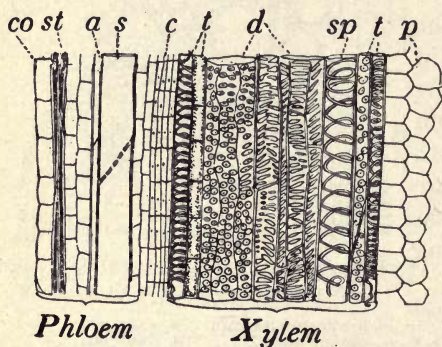 co st a s c t d sp t p
Phloem Xylem